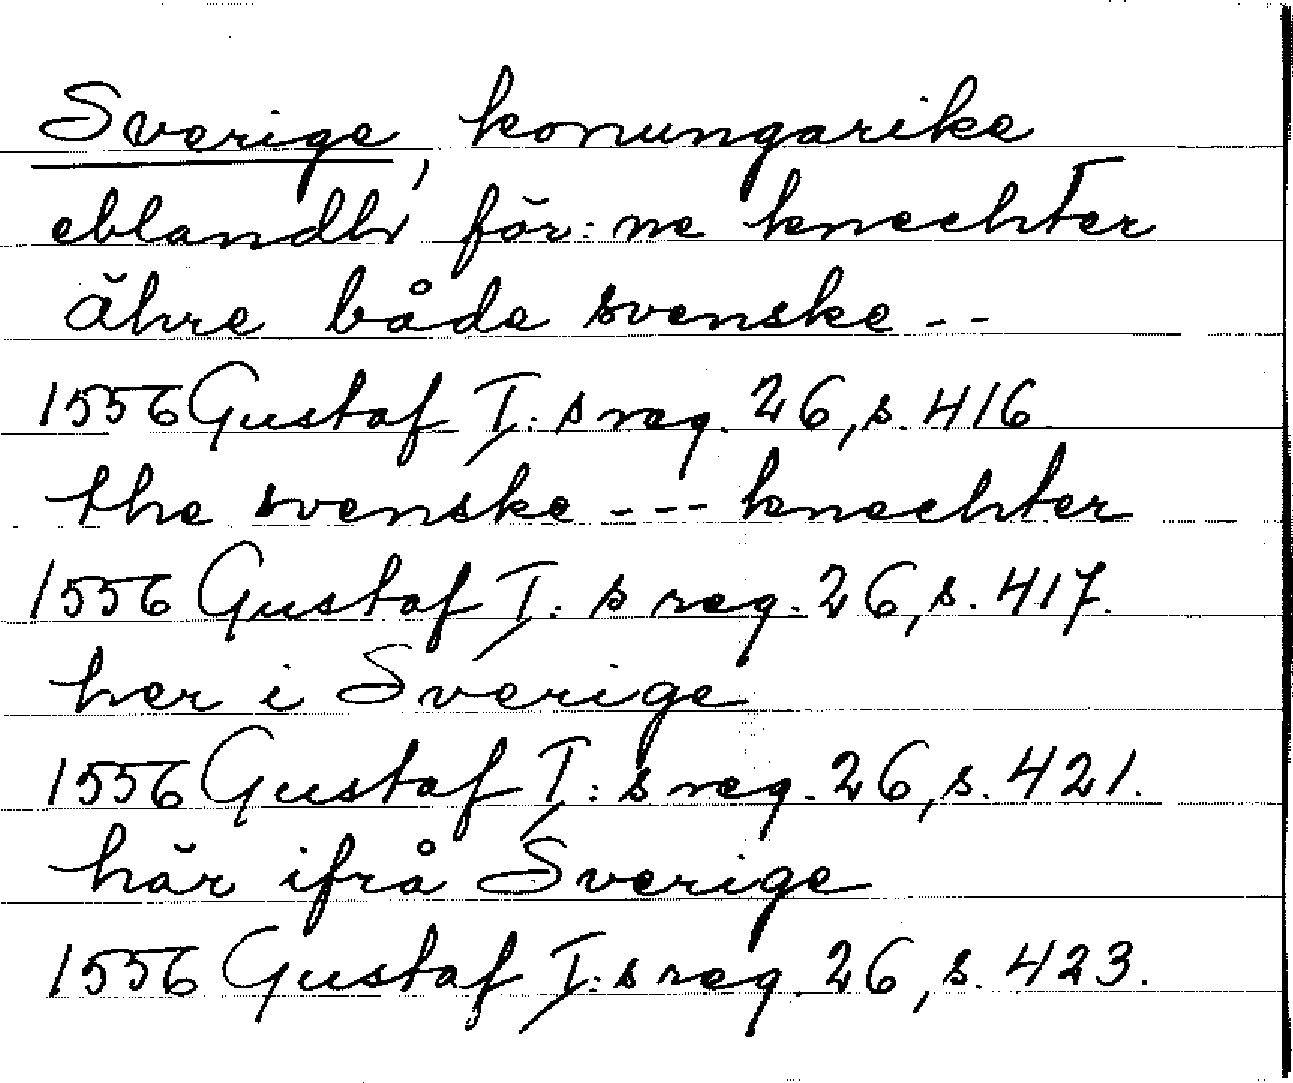 Sverige, konungarike
eblandh för:ne knechter
ähre både svenske - -
1556 Gustaf I:s reg. 26, s. 416
the svenske - - - knechter
1556 Gustaf I:s reg. 26, s. 417.
her i Sverige
1556 Gustaf I:s reg. 26, s. 421.
här ifrå Sverige
1556 Gustaf I:s reg. 26, s. 423.